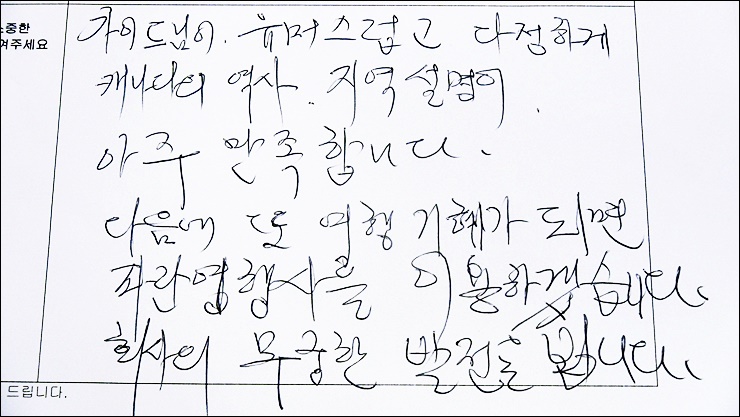 소중한
여주세요
가이드님이. 유머스럽고 다정하게
캐나다의 역사. 지역설명이.
아주 만족합니다.
다음에 또 여행기회가 되면
파란영행사를 이용하겠습니다.
회사의 무궁한 발전을 빕니다.
드립니다.